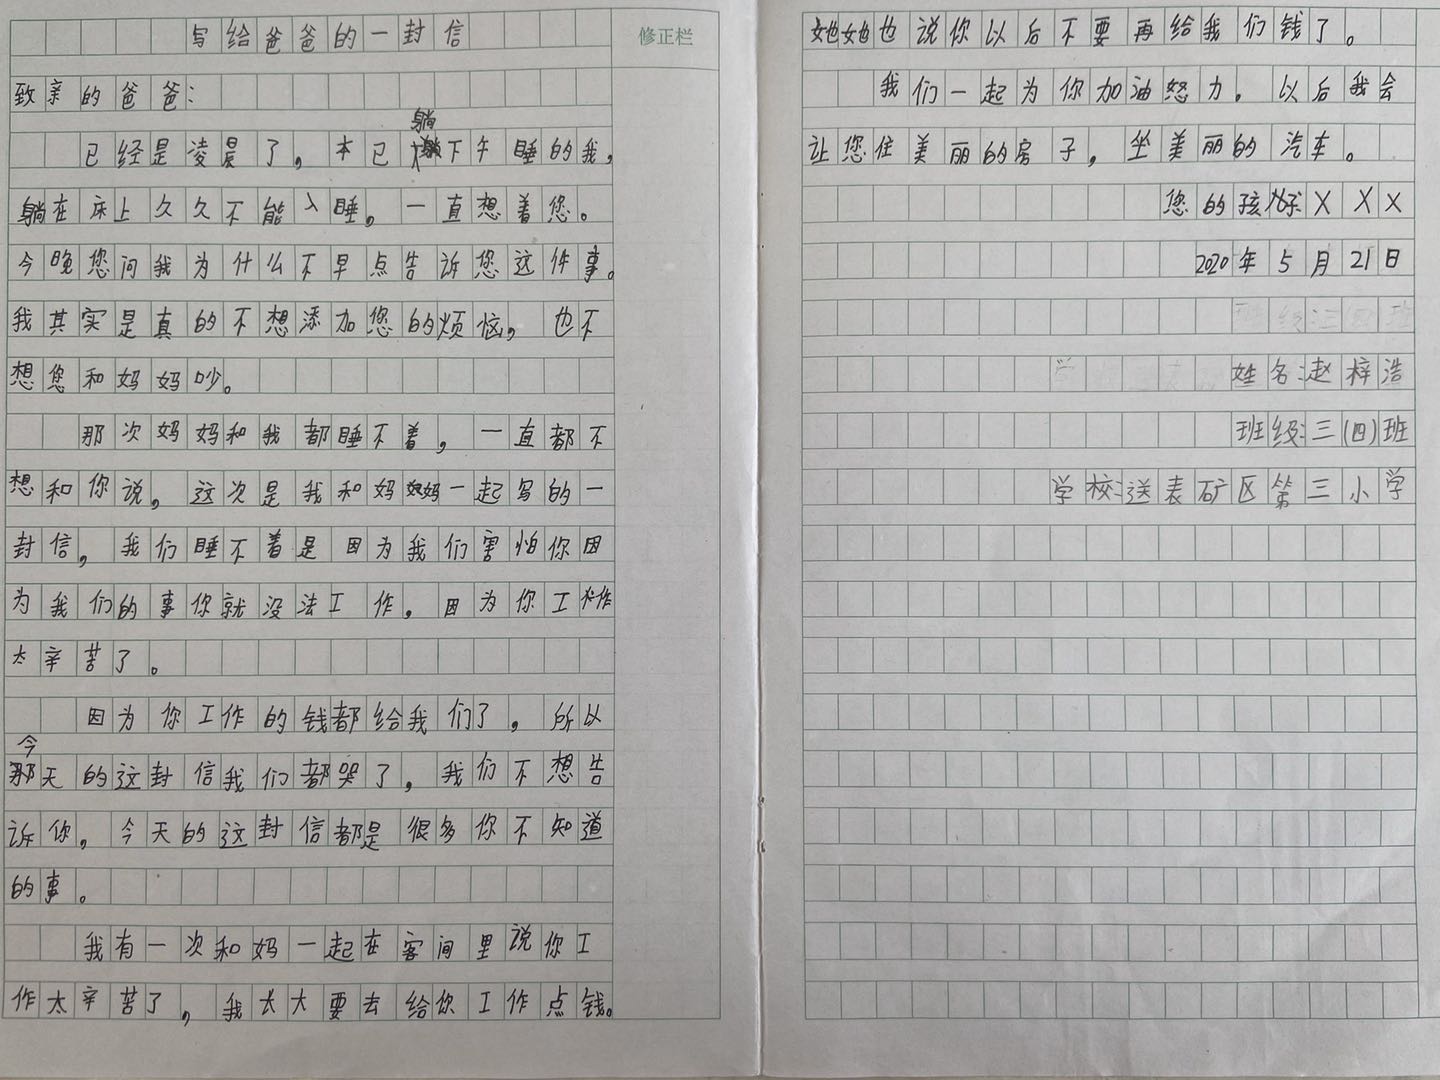 写给爸爸的一封信
修正栏
致亲的爸爸：
已经是凌晨了，本已躺下午睡的我，
躺在床上久久不能入睡。一直想着您。
今晚您问我为什么不早点告诉您这件事。
我其实是真的不想添加您的烦恼，也不
想您和妈妈吵。
那次妈妈和我都睡不着，一直都不
想和你说，这次是我和妈妈一起写的一
封信，我们睡不着是因为我们害怕你因
为我们的事你就没法工作。因为你工作
太辛苦了。
因为你工作的钱都给我们了，所以
今天的这封信我们都哭了，我们不想告
诉你，今天的这封信都是很多你不知道
的事。
我有一次和妈一起在客间里说你工
作太辛苦了，我长大要去给你工作点钱。
她她也说你以后不要再给我们钱了。
我们一起为你加油怒力。以后我会
让您住美丽的房子，坐美丽的汽车。
您的孩子XXX
2020年5月21日
姓名：赵梓浩
班级：三(四)班
学校：送表矿区第三小学